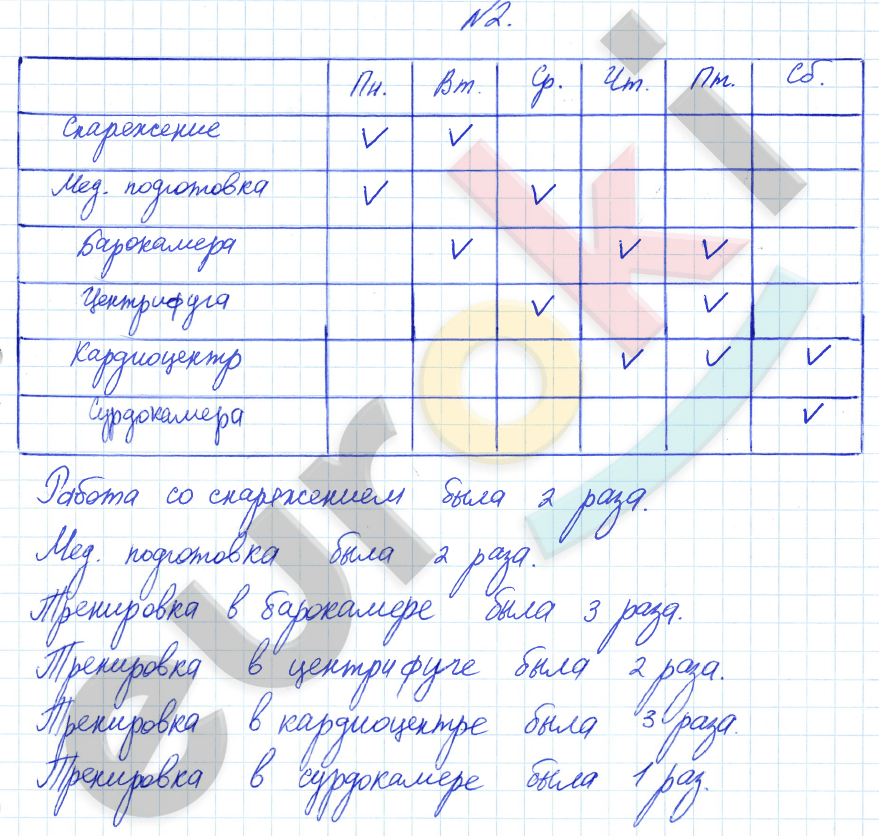 №2.
Пн. Вт. Ср. Чт. Пт. Сб.
Снаряжение ✓ ✓
Мед. подготовка ✓ ✓
Барокамера ✓ ✓ ✓
Центрифуга ✓ ✓
Кардиоцентр ✓ ✓ ✓
Сурдокамера ✓
Работа со снаряжением была 2 раза.
Мед. подготовка была 2 раза.
Тренировка в барокамере была 3 раза.
Тренировка в центрифуге была 2 раза.
Тренировка в кардиоцентре была 3 раза.
Тренировка в сурдокамере была 1 раз.
euroki